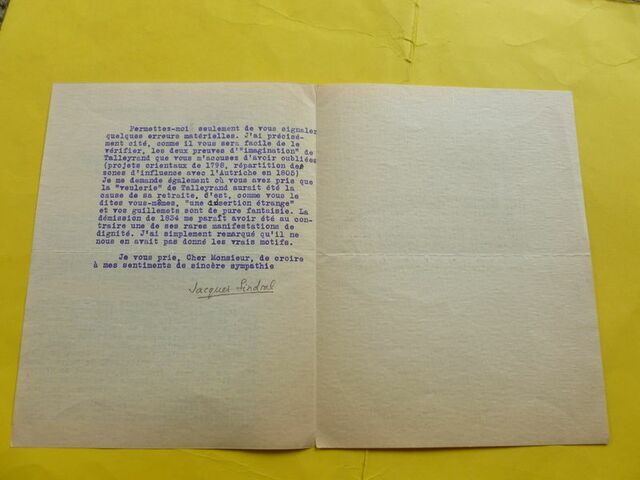 Permettez-moi seulement de vous signaler
quelques erreurs matérielles. J'ai précisé-
ment cité, comme il vous sera facile de le
vérifier, les deux preuves d'"imagination" de
Talleyrand que vous m'accusez d'avoir oubliées
(projets orientaux de 1798, répartition des
zones d'influence avec l'Autriche en 1805)
Je me demande également où vous avez pris que
la "veulerie" de Talleyrand aurait été la
cause de sa retraite. C'est, comme vous le
dites vous-mêmes, "une assertion étrange"
et vos guillemets sont de pure fantaisie. La
démission de 1834 me paraît avoir été au con-
traire une de ses rares manifestations de
dignité. J'ai simplement remarqué qu'il ne
nous en avait pas donné les vrais motifs.
Je vous prie, Cher Monsieur, de croire
à mes sentiments de sincère sympathie
Jacques Sindral